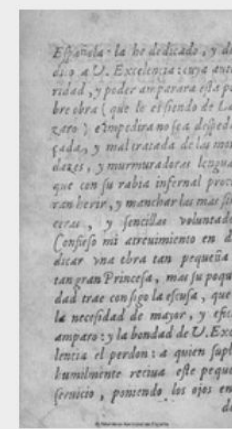 Española: la he dedicado, y de
dico a V. Excelencia: cuya auto
ridad, y poder amparara esta po
bre obra (que le ofiendo de La
zaro) e impedira no sea despeda
çada, y maltratada de las mor
dazes, y murmuradoras lenguas
que con su rabia infernal procu
ran herir, y manchar las mas sin
ceras, y sencillas voluntades
Confieso mi atreuimiento en de
dicar vna obra tan pequeña a
tan gran Princesa, mas su poque
dad trae consigo la escusa, que es
la necesidad de mayor, y eficaz
amparo: y la bondad de V. Exce
lencia el perdon: a quien suplico
humilmente reciua este pequeño
seruicio, poniendo los ojos en
de
© Biblioteca Nacional de España